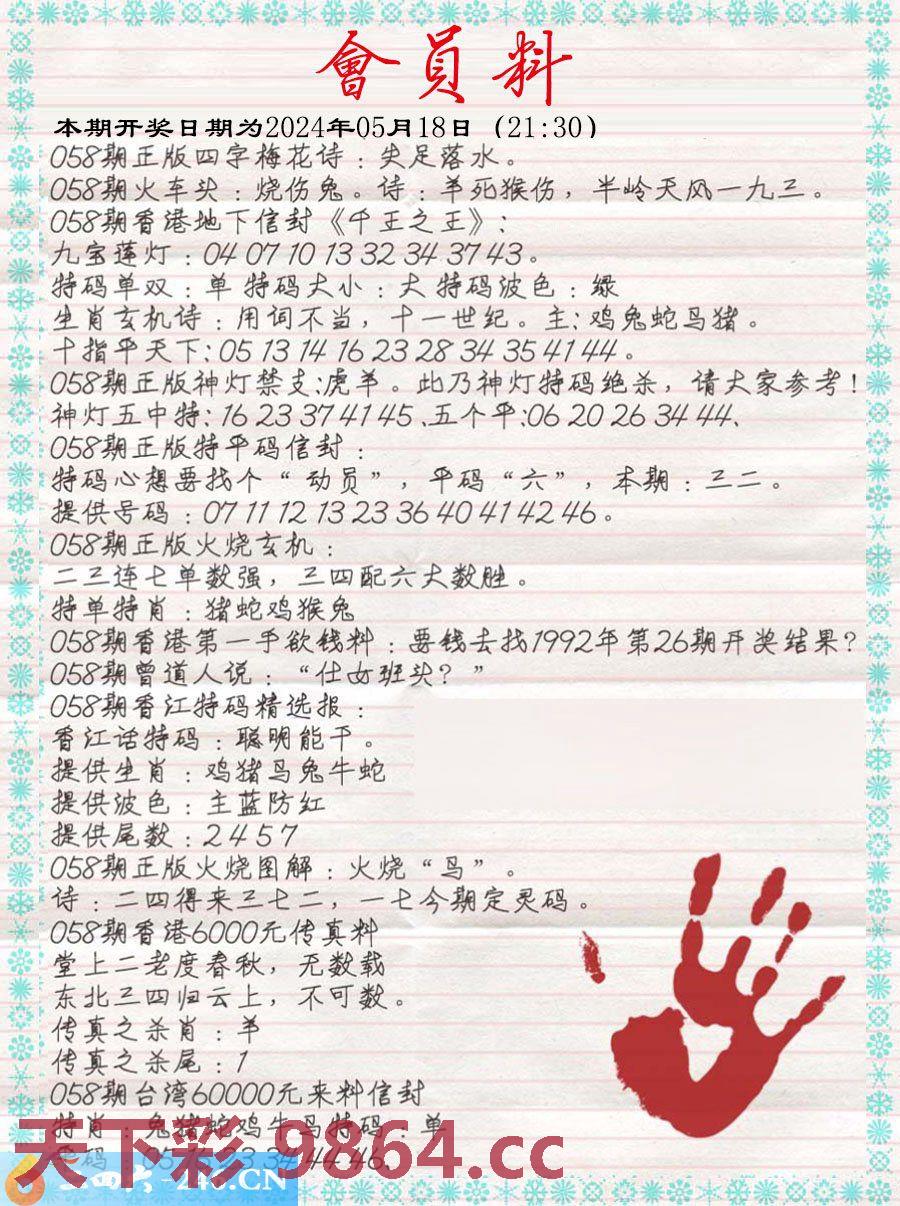 會員料
本期开奖日期为2024年05月18日（21:30）
058期正版四字梅花诗：失足落水。
058期火车头：烧伤兔。诗：羊死猴伤，半岭天风一九三。
058期香港地下信封《千王之王》:
九宝莲灯：04 07 10 13 32 34 37 43。
特码单双：单 特码大小：大 特码波色：绿
生肖玄机诗：用词不当，十一世纪。主:鸡兔蛇马猪。
十指平天下:05 13 14 16 23 28 34 35 41 44。
058期正版神灯禁支:虎羊。此乃神灯特码绝杀，请大家参考!
神灯五中特:16 23 37 41 45、五个平:06 20 26 34 44、
058期正版特平码信封：
特码心想要找个“动员”，平码“六”，本期：三二。
提供号码：07 11 12 13 23 36 40 41 42 46。
058期正版火烧玄机：
二三连七单数强，三四配六大数胜。
特单特肖：猪蛇鸡猴兔
058期香港第一手欲钱料：要钱去找1992年第26期开奖结果?
058期曾道人说：“仕女班头?”
058期香江特码精选报：
香江话特码：聪明能干。
提供生肖：鸡猪马兔牛蛇
提供波色：主蓝防红
提供尾数：2 4 5 7
058期正版火烧图解：火烧“鸟”。
诗：二四得来三七二，一七今期定灵码。
058期香港6000元传真料
堂上二老度春秋，无数载
东北三四归云上，不可数。
传真之杀肖：羊
传真之杀尾：1
058期台湾60000元来料信封
特肖：兔猪蛇鸡牛马特码：单
天下彩-9864.cc
23 34 44 46、
246.CN